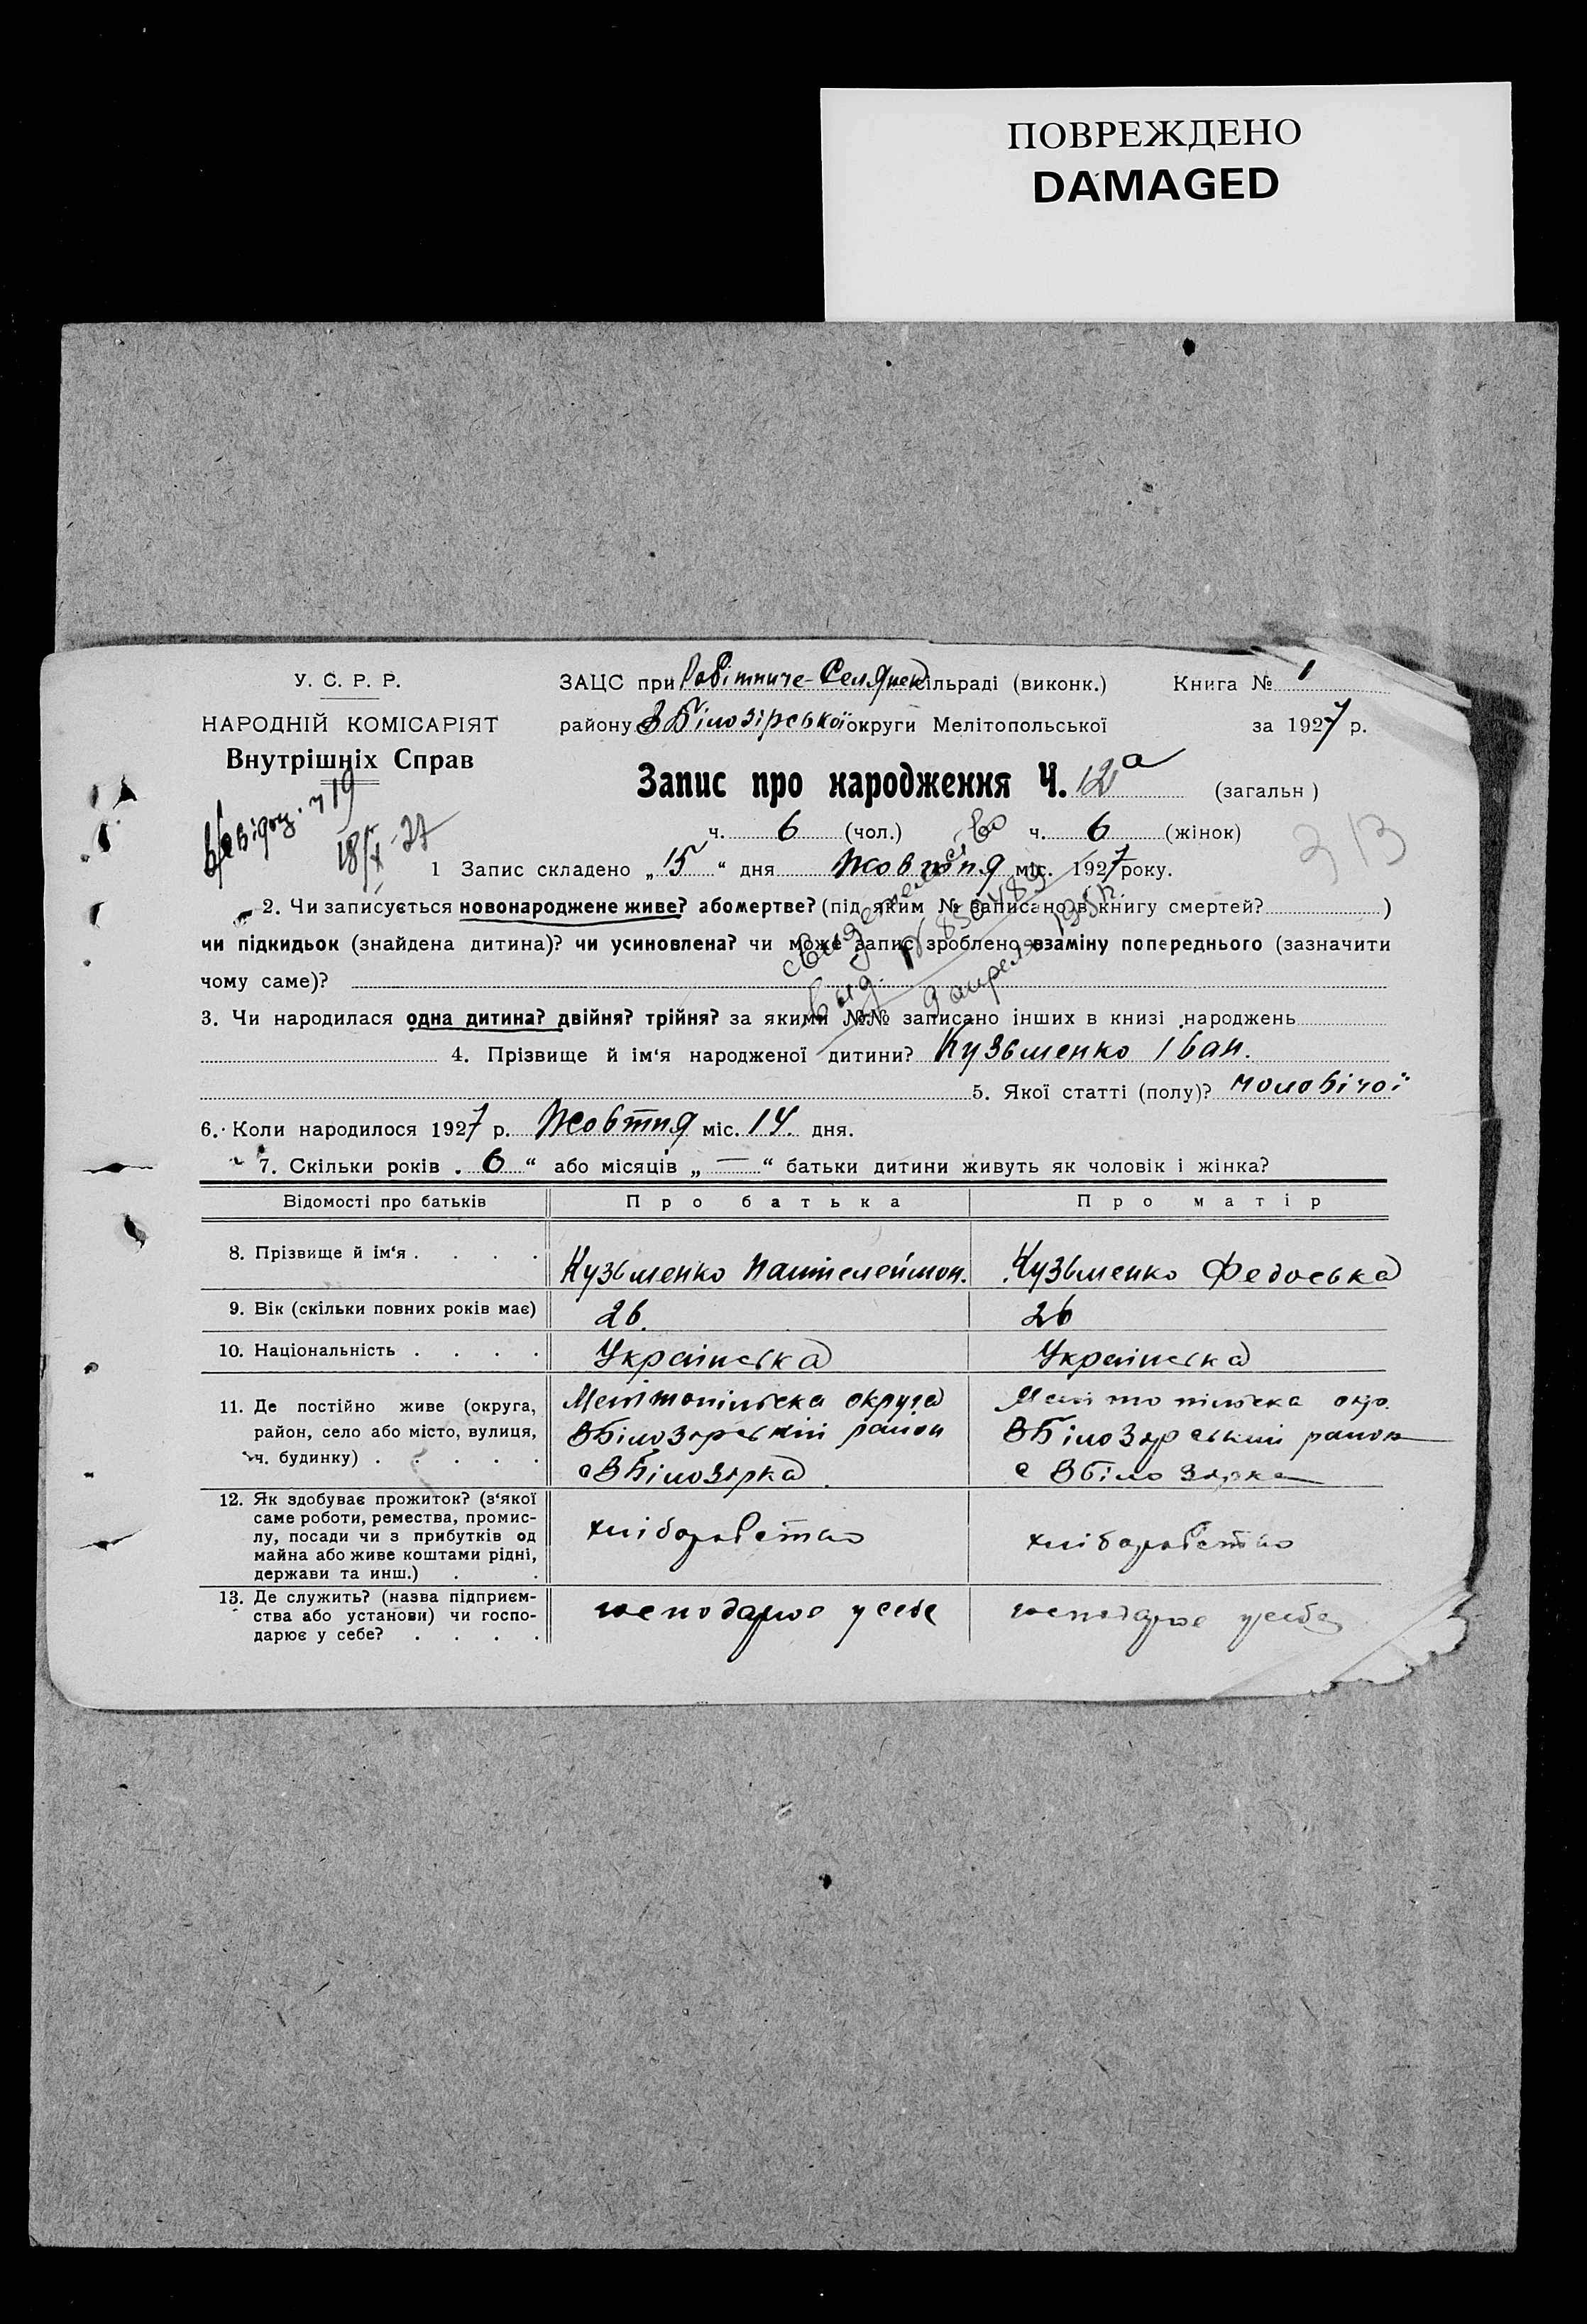 ПОВРЕЖДЕНО
DAMAGED
У. С. Р. Р.
НАРОДНІЙ КОМІСАРІЯТ
Внутрішніх Справ
ЗАЦС при Робітниче-Селянск сільраді (виконк.) Книга № 1
району В Білозірської округи Мелітопольської за 1927 р.
Запис про народження Ч. 12а (загальн)
ч. 6 (чол.) ч. 6 (жінок)
313
ч 19
18/X-27
1 Запис складено „15“ дня Жовтня міс. 1927 року.
свидетельство
выд.
9 апреля
2. Чи записується новонароджене живе? або мертве? (під яким № записано в книгу смертей? )
чи підкидьок (знайдена дитина)? чи усиновлена? чи може запис зроблено взаміну попереднього (зазначити
чому саме)?
3. Чи народилася одна дитина? двійня? трійня? за якими №№ записано інших в книзі народжень
4. Прізвище й ім‘я народженої дитини? Кузьменко Іван.
5. Якої статті (полу)? чоловічої
6. Коли народилося 1927 р. Жовтня міс. 14. дня.
7. Скільки років „6“ або місяців „—“ батьки дитини живуть як чоловік і жінка?
Відомості про батьків Про батька Про матір
8. Прізвище й ім‘я . . . . Кузьменко Пантелеймон. Кузьменко Федоська
9. Вік (скільки повних років має) 26. 26
10. Національність . . . . Українська Українська
11. Де постійно живе (округа, Мелітопільска округа Мелітопільска окр.
район, село або місто, вулиця, ВБілозярский район ВБілозярський район
ч. будинку) . . . . . с ВБілозярка. с ВБілозярка
12. Як здобуває прожиток? (з‘якої
саме роботи, ремества, промис-
лу, посади чи з прибутків од хліборобство хліборобство
майна або живе коштами рідні,
держави та инш.) . .
13. Де служить? (назва підприєм-
ства або установи) чи госпо- господарює у себе господарює у себе
дарює у себе? . . . .